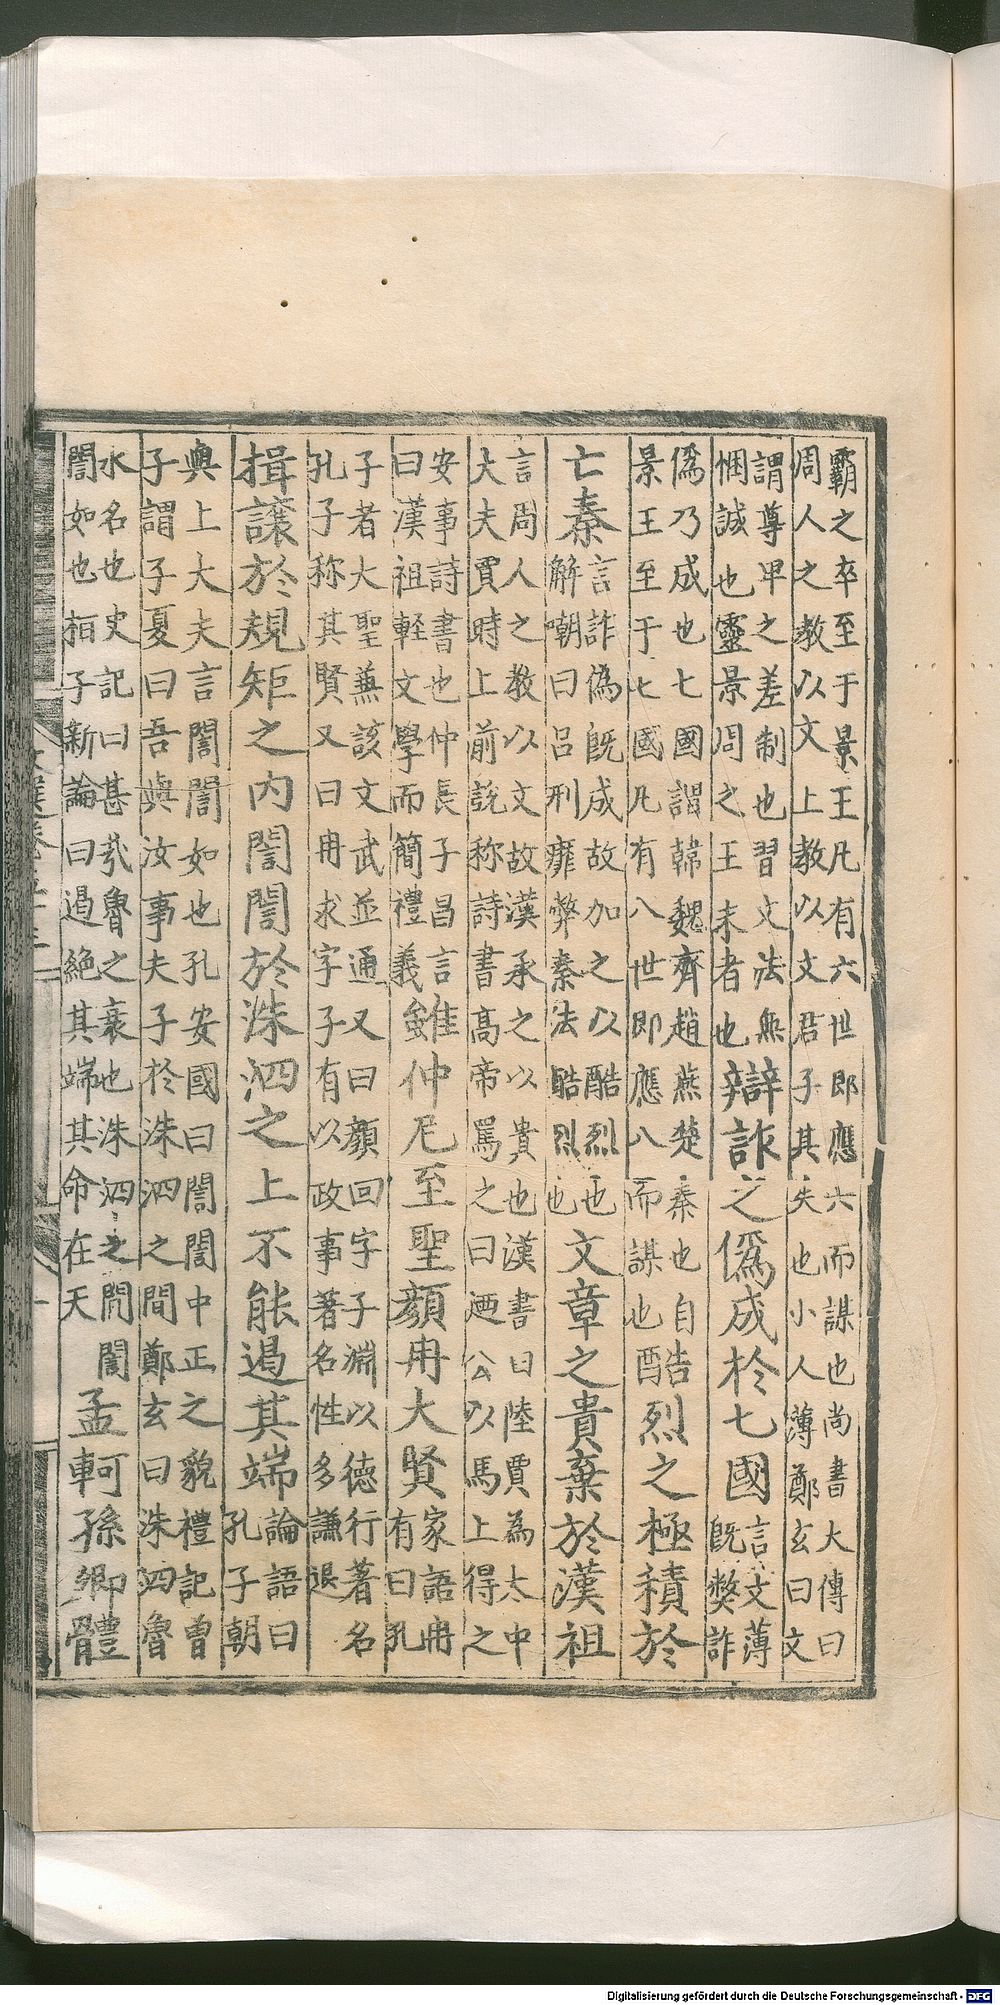 霸之卒至于景王凡有六世即應六而謀也尚書大傳曰
周人之教以文上教以文君子其失也小人薄鄭玄曰文
謂尊卑之差制也習文法無
悃誠也靈景周之王末者也辯詐之偽成於七國言文薄
既獘詐
偽乃成也七國謂韓魏齊趙燕楚秦也自
景王至于七國凡有八世即應八而謀也酷烈之極積於
亡秦言詐偽既成故加之以酷烈也
解嘲曰呂刑靡弊秦法酷烈也文章之貴棄於漢祖
言周人之教以文故漢承之以貴也漢書曰陸賈為太中
大夫賈時上前說称詩書高帝罵之曰迺公以馬上得之
安事詩書也仲長子昌言
曰漢祖軽文學而簡禮義雖仲尼至聖顏冉大賢家語冉
有曰孔
子者大聖兼該文武並通又曰顏回字子淵以德行著名
孔子称其賢又曰冉求字子有以政事著名性多謙退
揖譲於規矩之内誾誾於洙泗之上不能遏其端論語曰
孔子朝
與上大夫言誾誾如也孔安國曰誾誾中正之貌禮記曽
子謂子夏曰吾與汝事夫子於洙泗之間鄭玄曰洙泗魯
水名也史記曰甚㢤魯之衰也洙泗之間誾
誾如也桓子新論曰遏絶其端其命在天孟軻孫卿體
Digitalisierung gefördert durch die Deutsche Forschungsgemeinschaft - DFG